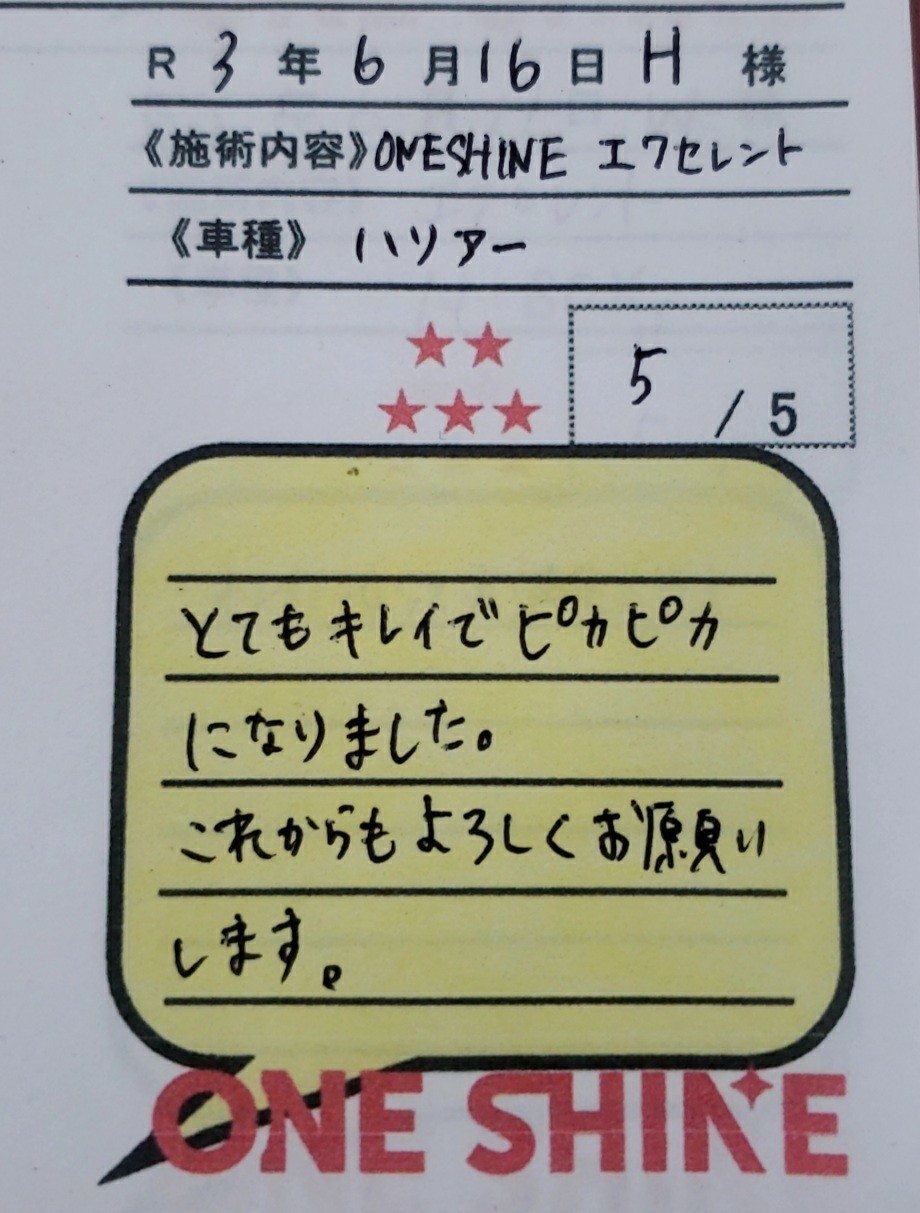 R 3 年 6 月 16 日 H 様
《施術内容》ONESHINE エクセレント
《車種》 ハリアー
5 / 5
とてもキレイでピカピカ
になりました。
これからもよろしくお願い
します。
ONE SHINE